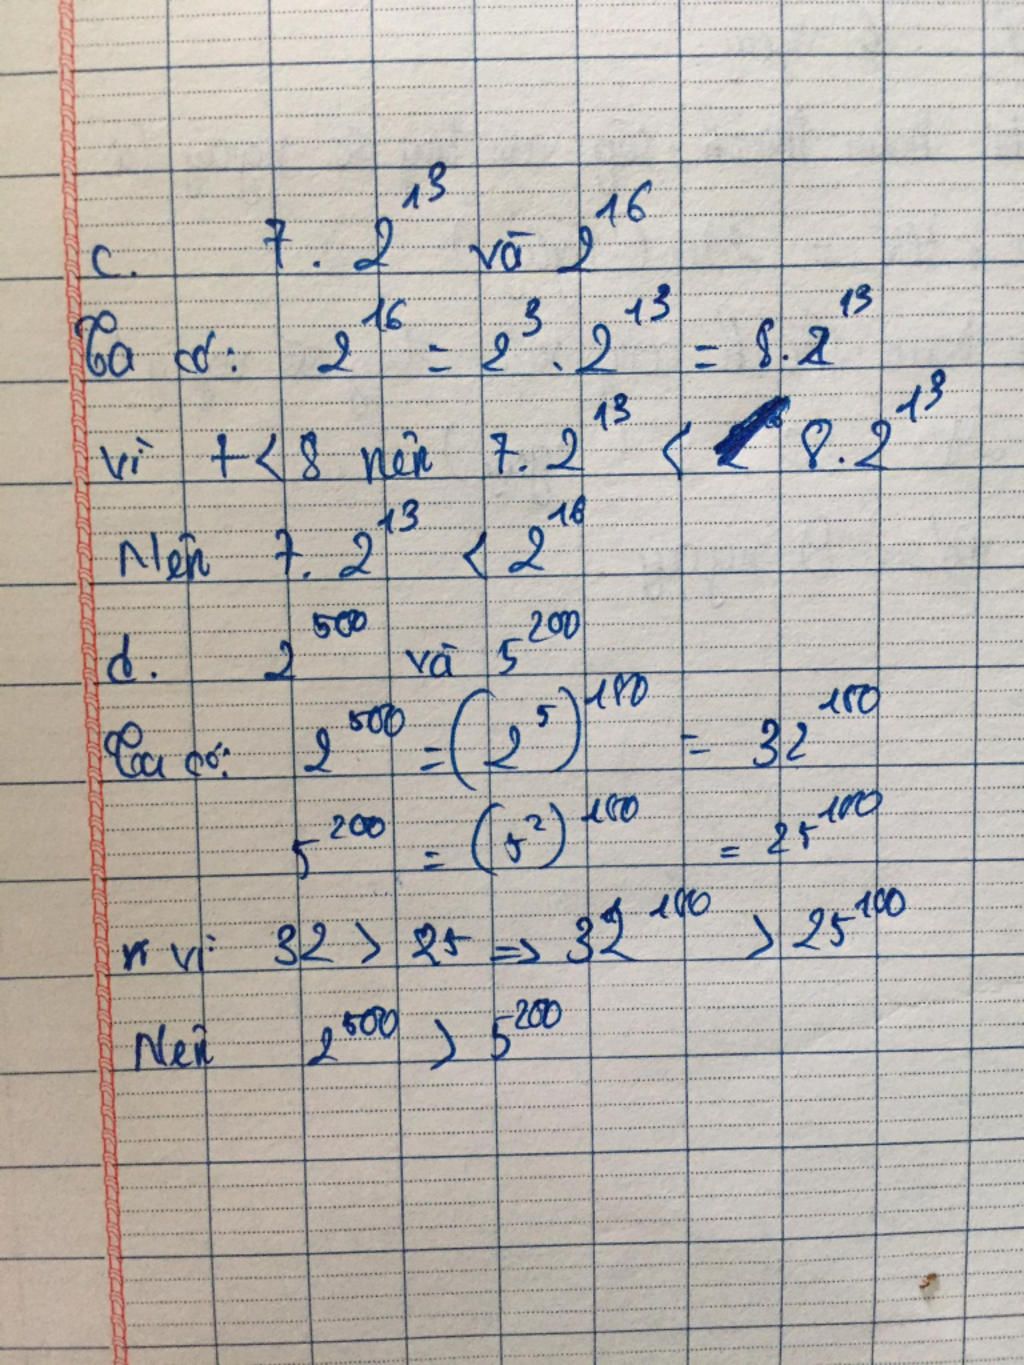 c. 7 . 2^13 và 2^16
Ta có: 2^16 = 2^3 . 2^13 = 8 . 2^13
vì 7 < 8 nên 7 . 2^13 < 8 . 2^13
Nên 7 . 2^13 < 2^16
d. 2^500 và 5^200
Ta có: 2^500 = (2^5)^100 = 32^100
5^200 = (5^2)^100 = 25^100
vì 32 > 25 => 32^100 > 25^100
Nên 2^500 > 5^200